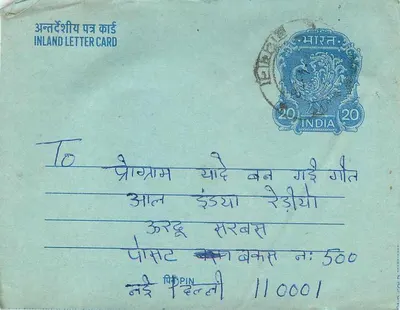 अन्तर्देशीय पत्र कार्ड
INLAND LETTER CARD
भारत
20 20
INDIA
To
प्रोग्राम यादे बन गई गीत
आल इंडया रेडीयो
ऊरदू सरबस
पोसट बकस नः 500
पिन PIN
नई दिल्ली 110001